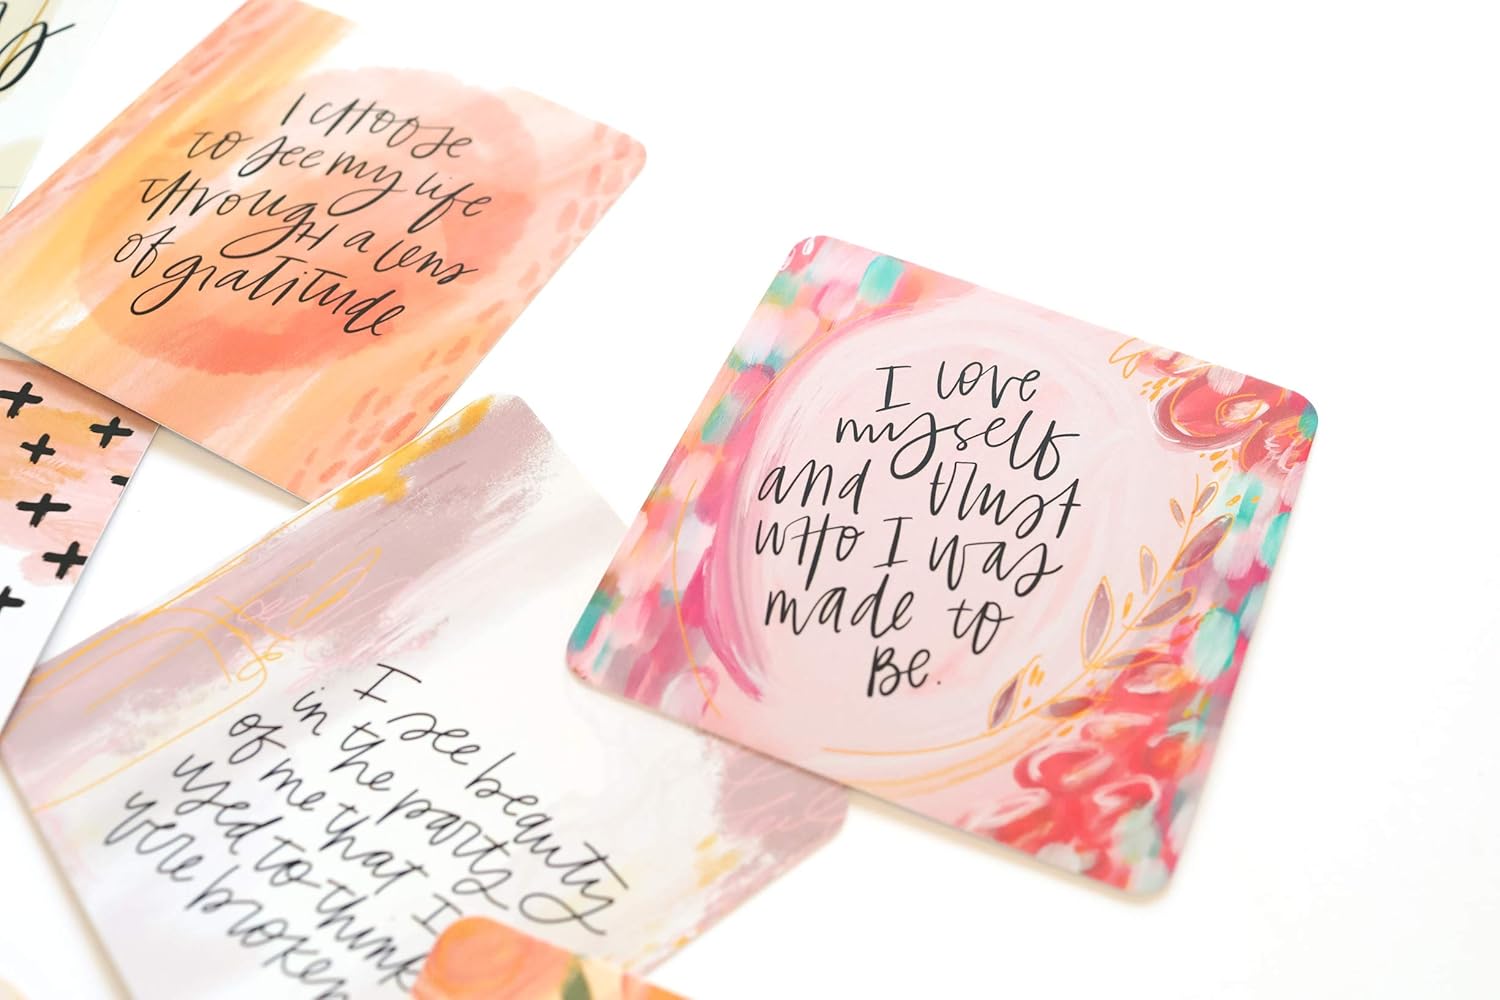 I choose
to see my life
through a lens
of gratitude
I love
myself
and trust
who I was
made to
Be.
I see beauty
in the parts
of me that I
used to think
were broken